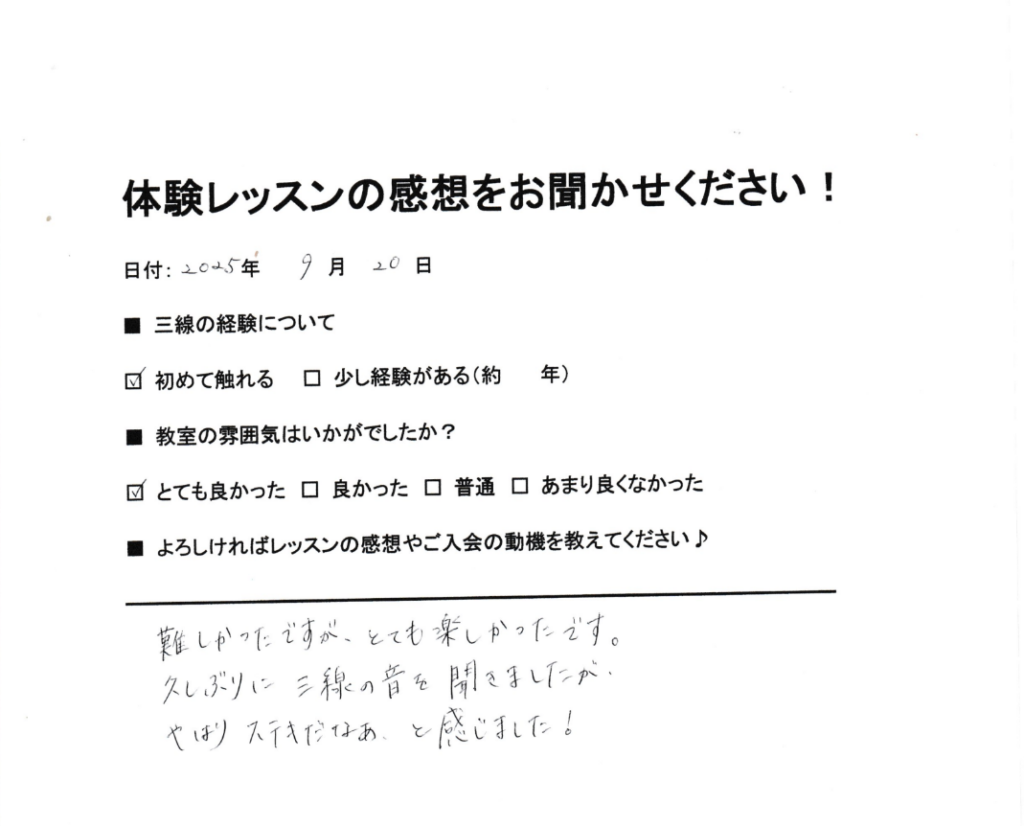 体験レッスンの感想をお聞かせください！
日付： 2025年 9月 20日
■ 三線の経験について
☑ 初めて触れる □ 少し経験がある（約 年）
■ 教室の雰囲気はいかがでしたか？
☑ とても良かった □ 良かった □ 普通 □ あまり良くなかった
■ よろしければレッスンの感想やご入会の動機を教えてください♪
難しかったですが、とても楽しかったです。
久しぶりに三線の音を聞きましたが、
やはりステキだなあ、と感じました！